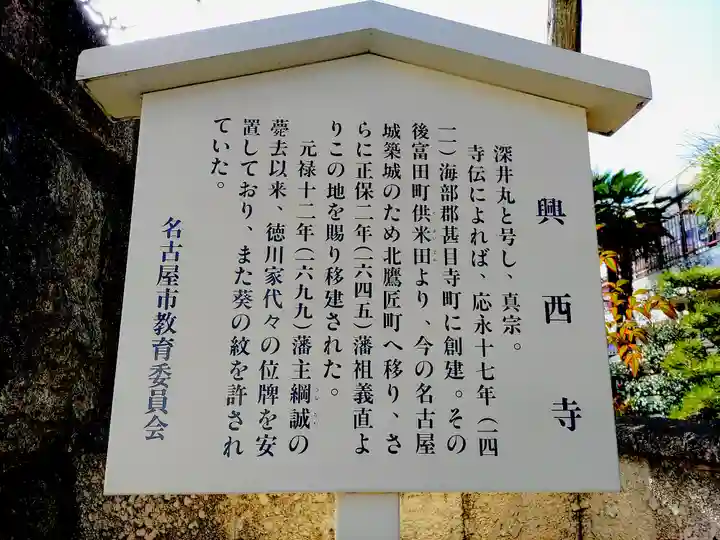 興西寺
深井丸と号し、真宗。
寺伝によれば、応永十七年(一四
一一)海部郡甚目寺町に創建。その
後富田町供米田より、今の名古屋
城築城のため北鷹匠町へ移り、さ
らに正保二年(一六四五)藩祖義直よ
りこの地を賜り移建された。
元禄十二年(一六九九)藩主綱誠の
薨去以来、徳川家代々の位牌を安
置しており、また葵の紋を許され
ていた。
名古屋市教育委員会